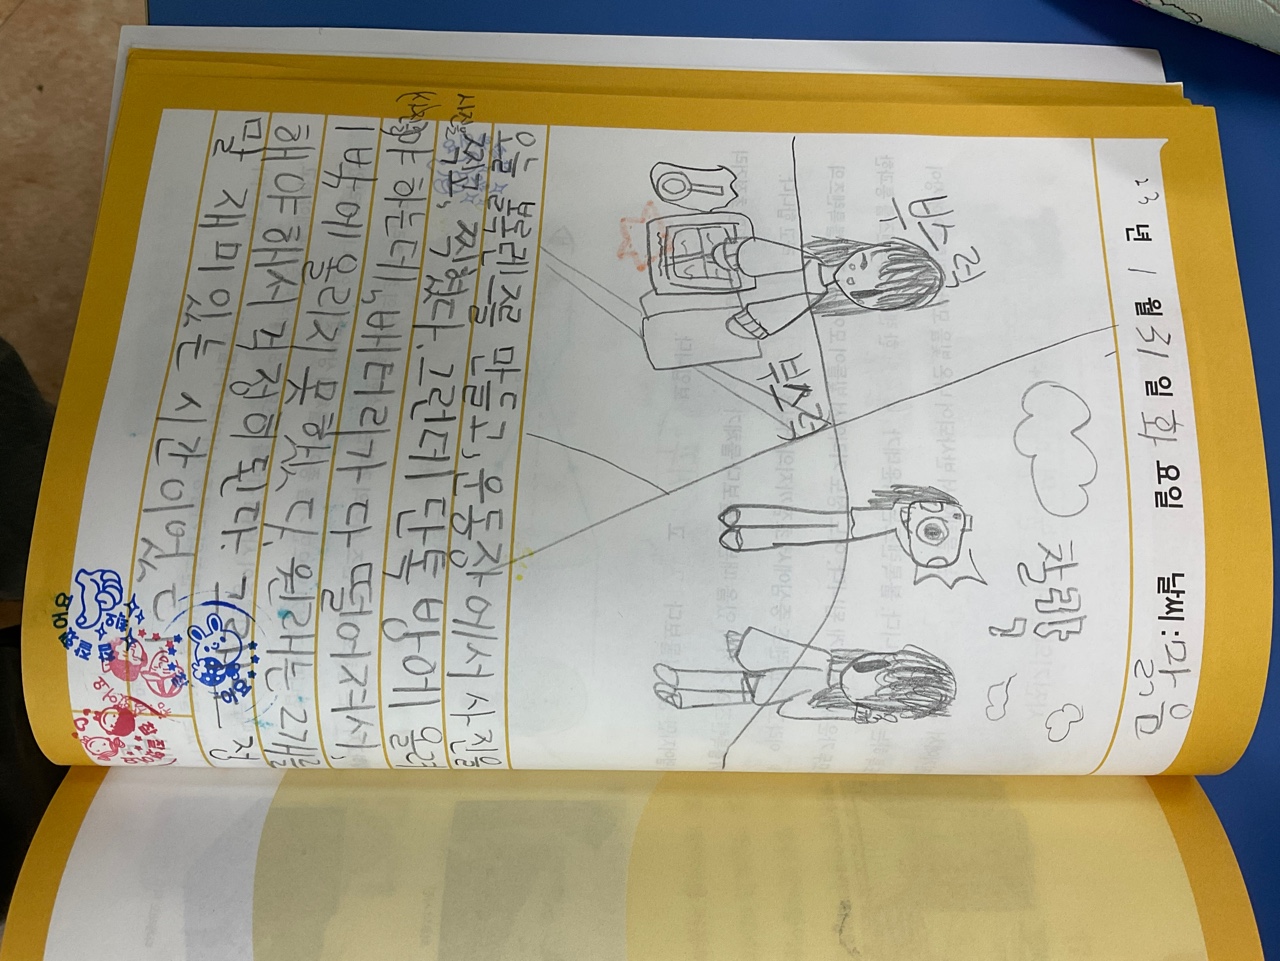 23 년 1 월 31 일 화 요일 날씨 : 맑음
찰랑
부스럭
부스럭
오늘 볼록렌즈를 만들고, 운동장에서 사진을
사진을 찍고, 찍혔다. 그런데 단톡방에 올려
(사진을)야 하는데, 배터리가 다 떨어져서,
1박에 올리지 못했다. 원래는 2개를
해야해서 걱정히 된다. 정
말 재미있는 시간이었다